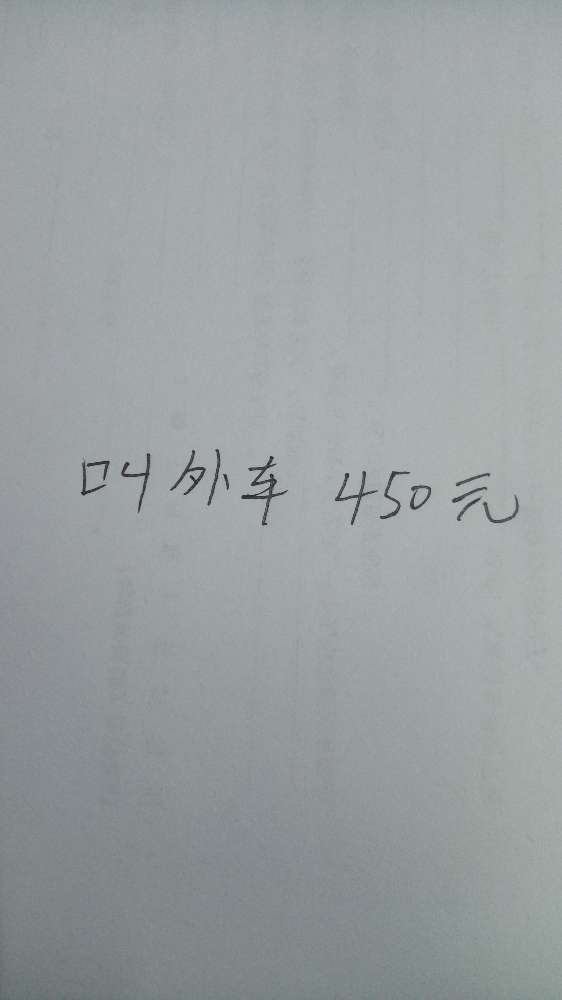 叫外车 450元